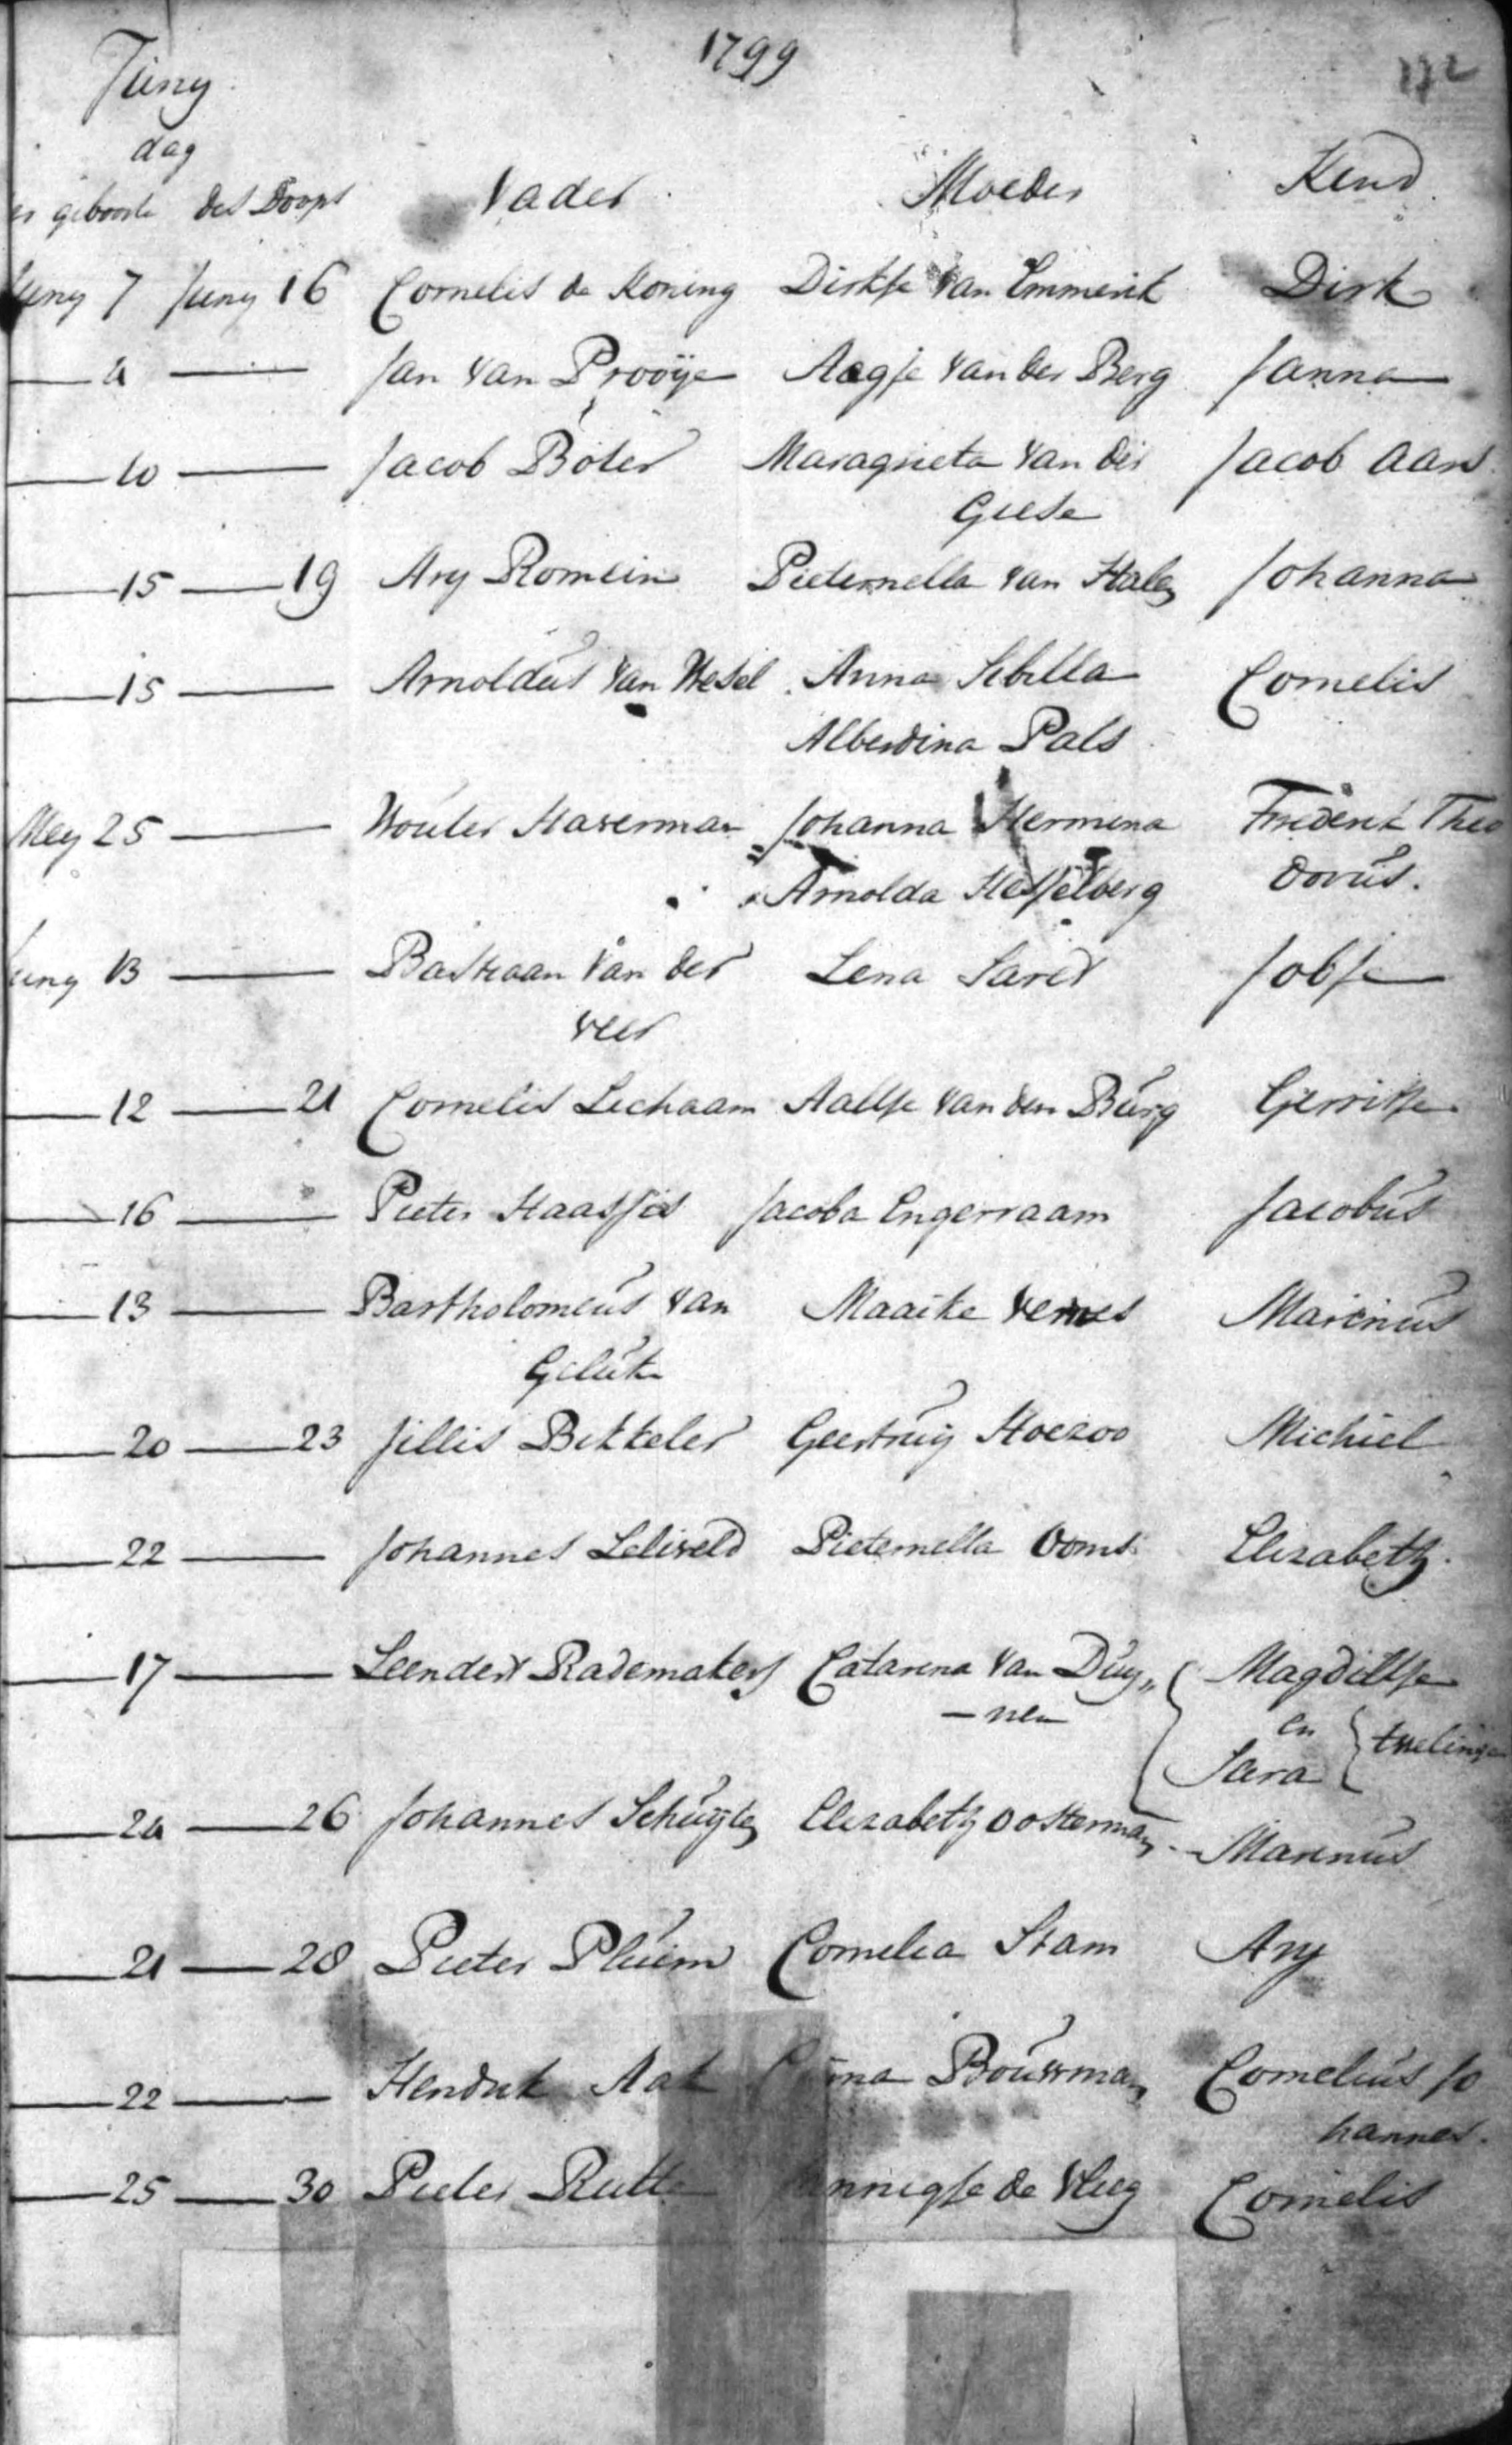 1799
172
Juny
dag
geboorte des Doops Vader Moeder Kind
Juny 7 Juny 16 Cornelis de Koning Dirkje van Emmerik Dirk
— 11 — Jan van Prooÿe Aagje van der Berg Janna
— 10 — Jacob Boter Maragrieta van der Jacob Aart
Giese
— 15 — 19 Ary Romein Pieternella van Halen Johanna
— 15 — Arnoldus van Wesel Anna Sibilla Cornelis
Alberdina Pals
Mey 25 — Wouter Haverman Johanna Hermina Frederik Theo
Arnolda Hesselberg dorus.
Juny 13 — Bastiaan van der Lena Jobje
veer
— 12 — 21 Cornelis Lechaam Aaltje van den Burg Gerritje
— 16 — Pieter Haasjes Jacoba Engerraam Jacobus
— 13 — Bartholomeus van Maaike Marinus
Geluk
— 20 — 23 Jillis Bekkeler Geertruy Hoezoo Michiel
— 22 — Johannes Leliveld Pieternella Ooms Elizabeth.
— 17 — Leendert Rademakers Catarina van Duy„ Magdiltje
— nen en
Sara twelingen
— 24 — 26 Johannes Schuyten Elizabeth Oosterman Marinus
— 21 — 28 Pieter Pluim Cornelia Stam Ary
— 22 — Hendrik Kok Bouwman Cornelius Jo
hannes.
— 25 — 30 Pieter Rutte de Vlieg Cornelis